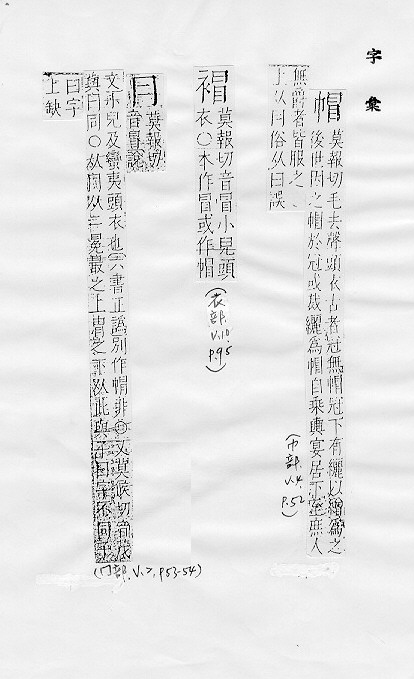 字彙
帽 莫報切毛去聲頭衣古者冠無帽冠下有纚以繒爲之
後世因之帽於冠或裁纚爲帽自乘輿宴居下至庶人
無爵者皆服之
上从冃俗从曰誤
(巾部. V.4. P.52)
褶 莫報切音冒小兒頭
衣○本作冒或作帽
(衣部. V.10. P.95)
冃 莫報切
音冒說
文小兒及蠻夷頭衣也六書正譌別作帽非 又莫候切音茂
與冒同○从冂从二冕最之上冑之下从此與 曰字不同
曰字
上缺
(冂部. V.2, P.53-54)